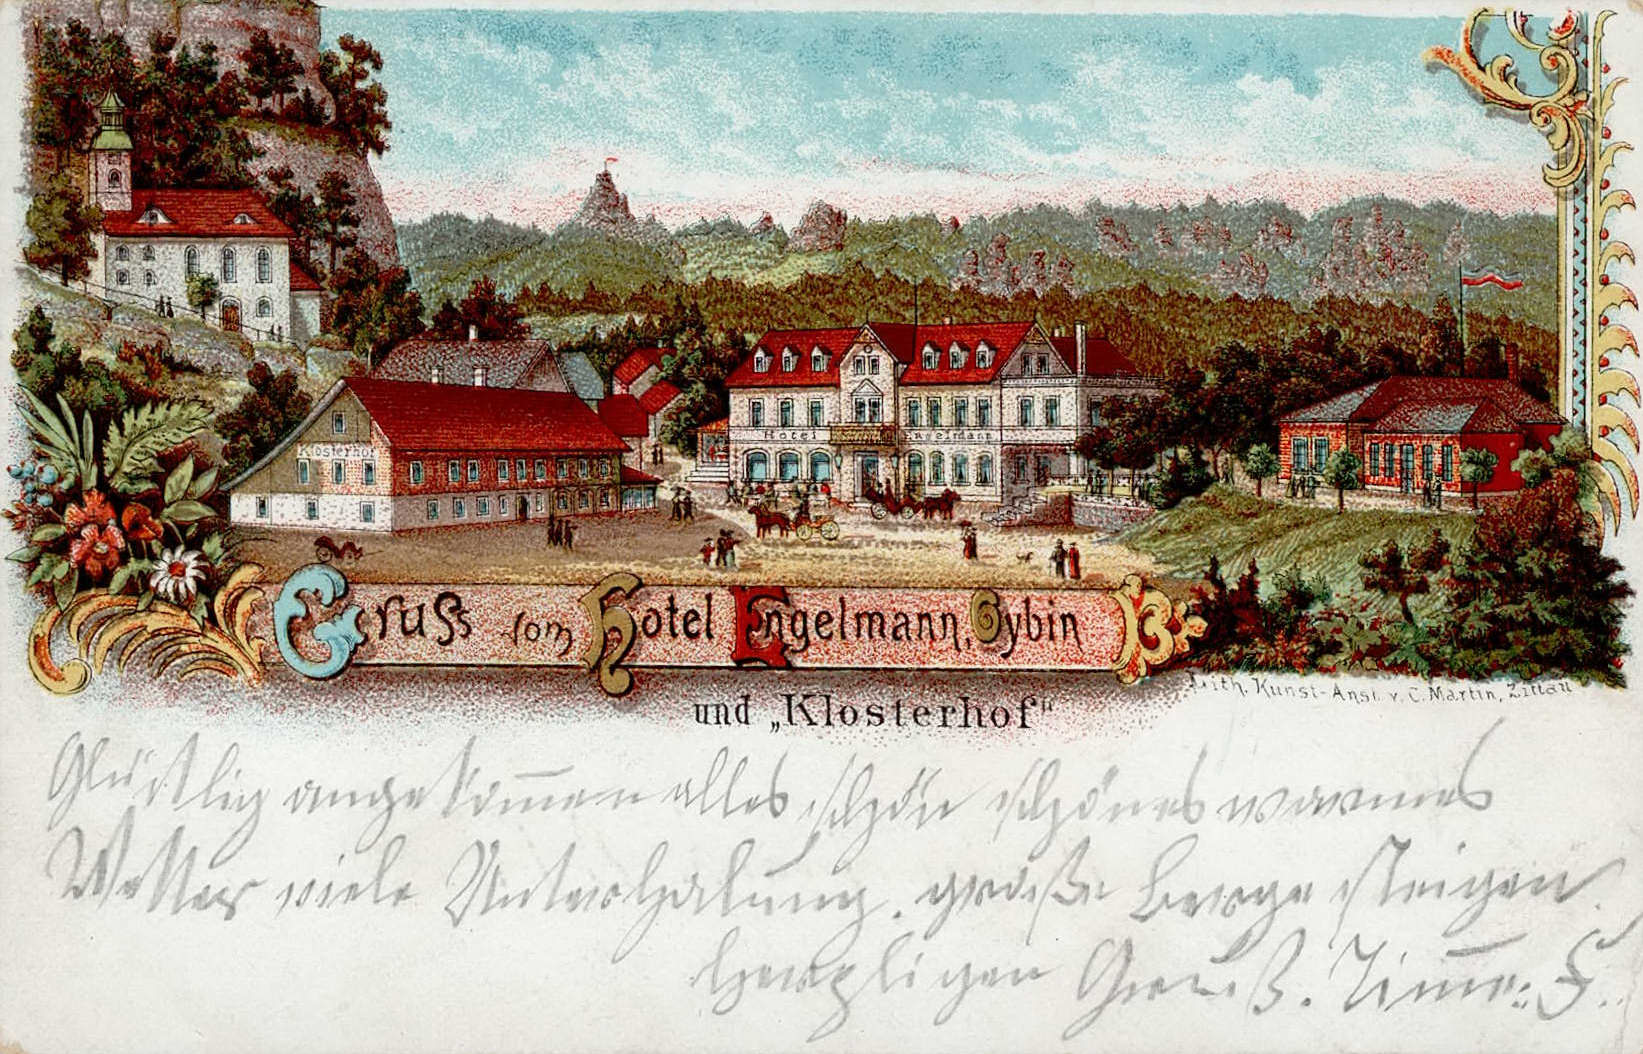 Klosterhof
Hotel Engelmann
Gruss vom Hotel Engelmann, Oybin
und „Klosterhof"
Lith. Kunst-Anst. v. C. Martin, Zittau
Glücklig angekommen alles schön schönes warmes
Wetter viele Unterhalung. große berge steigen.
herzligen Gruß.